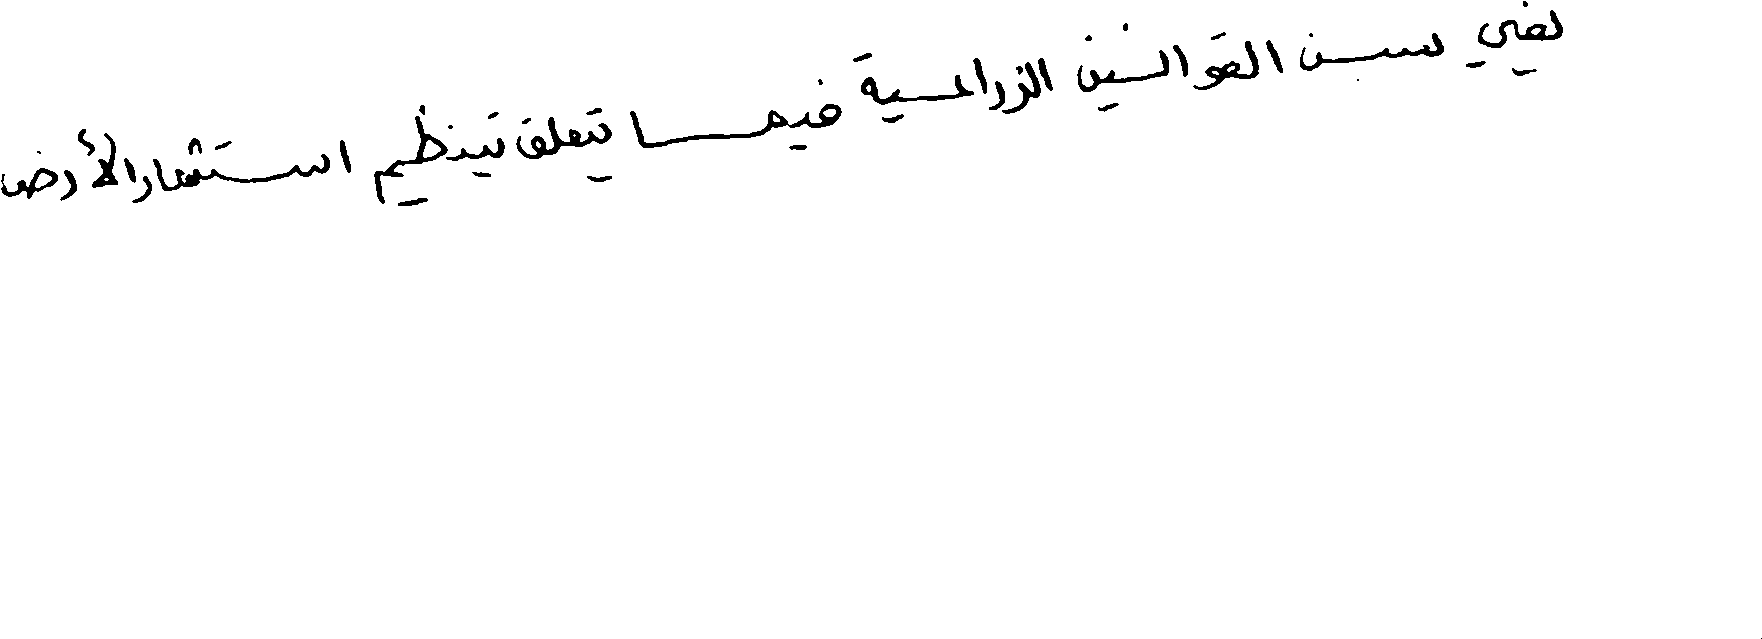 يضي بسن القوانين الزراعية فيما يتعلق بتنظيم استثمار الأرض